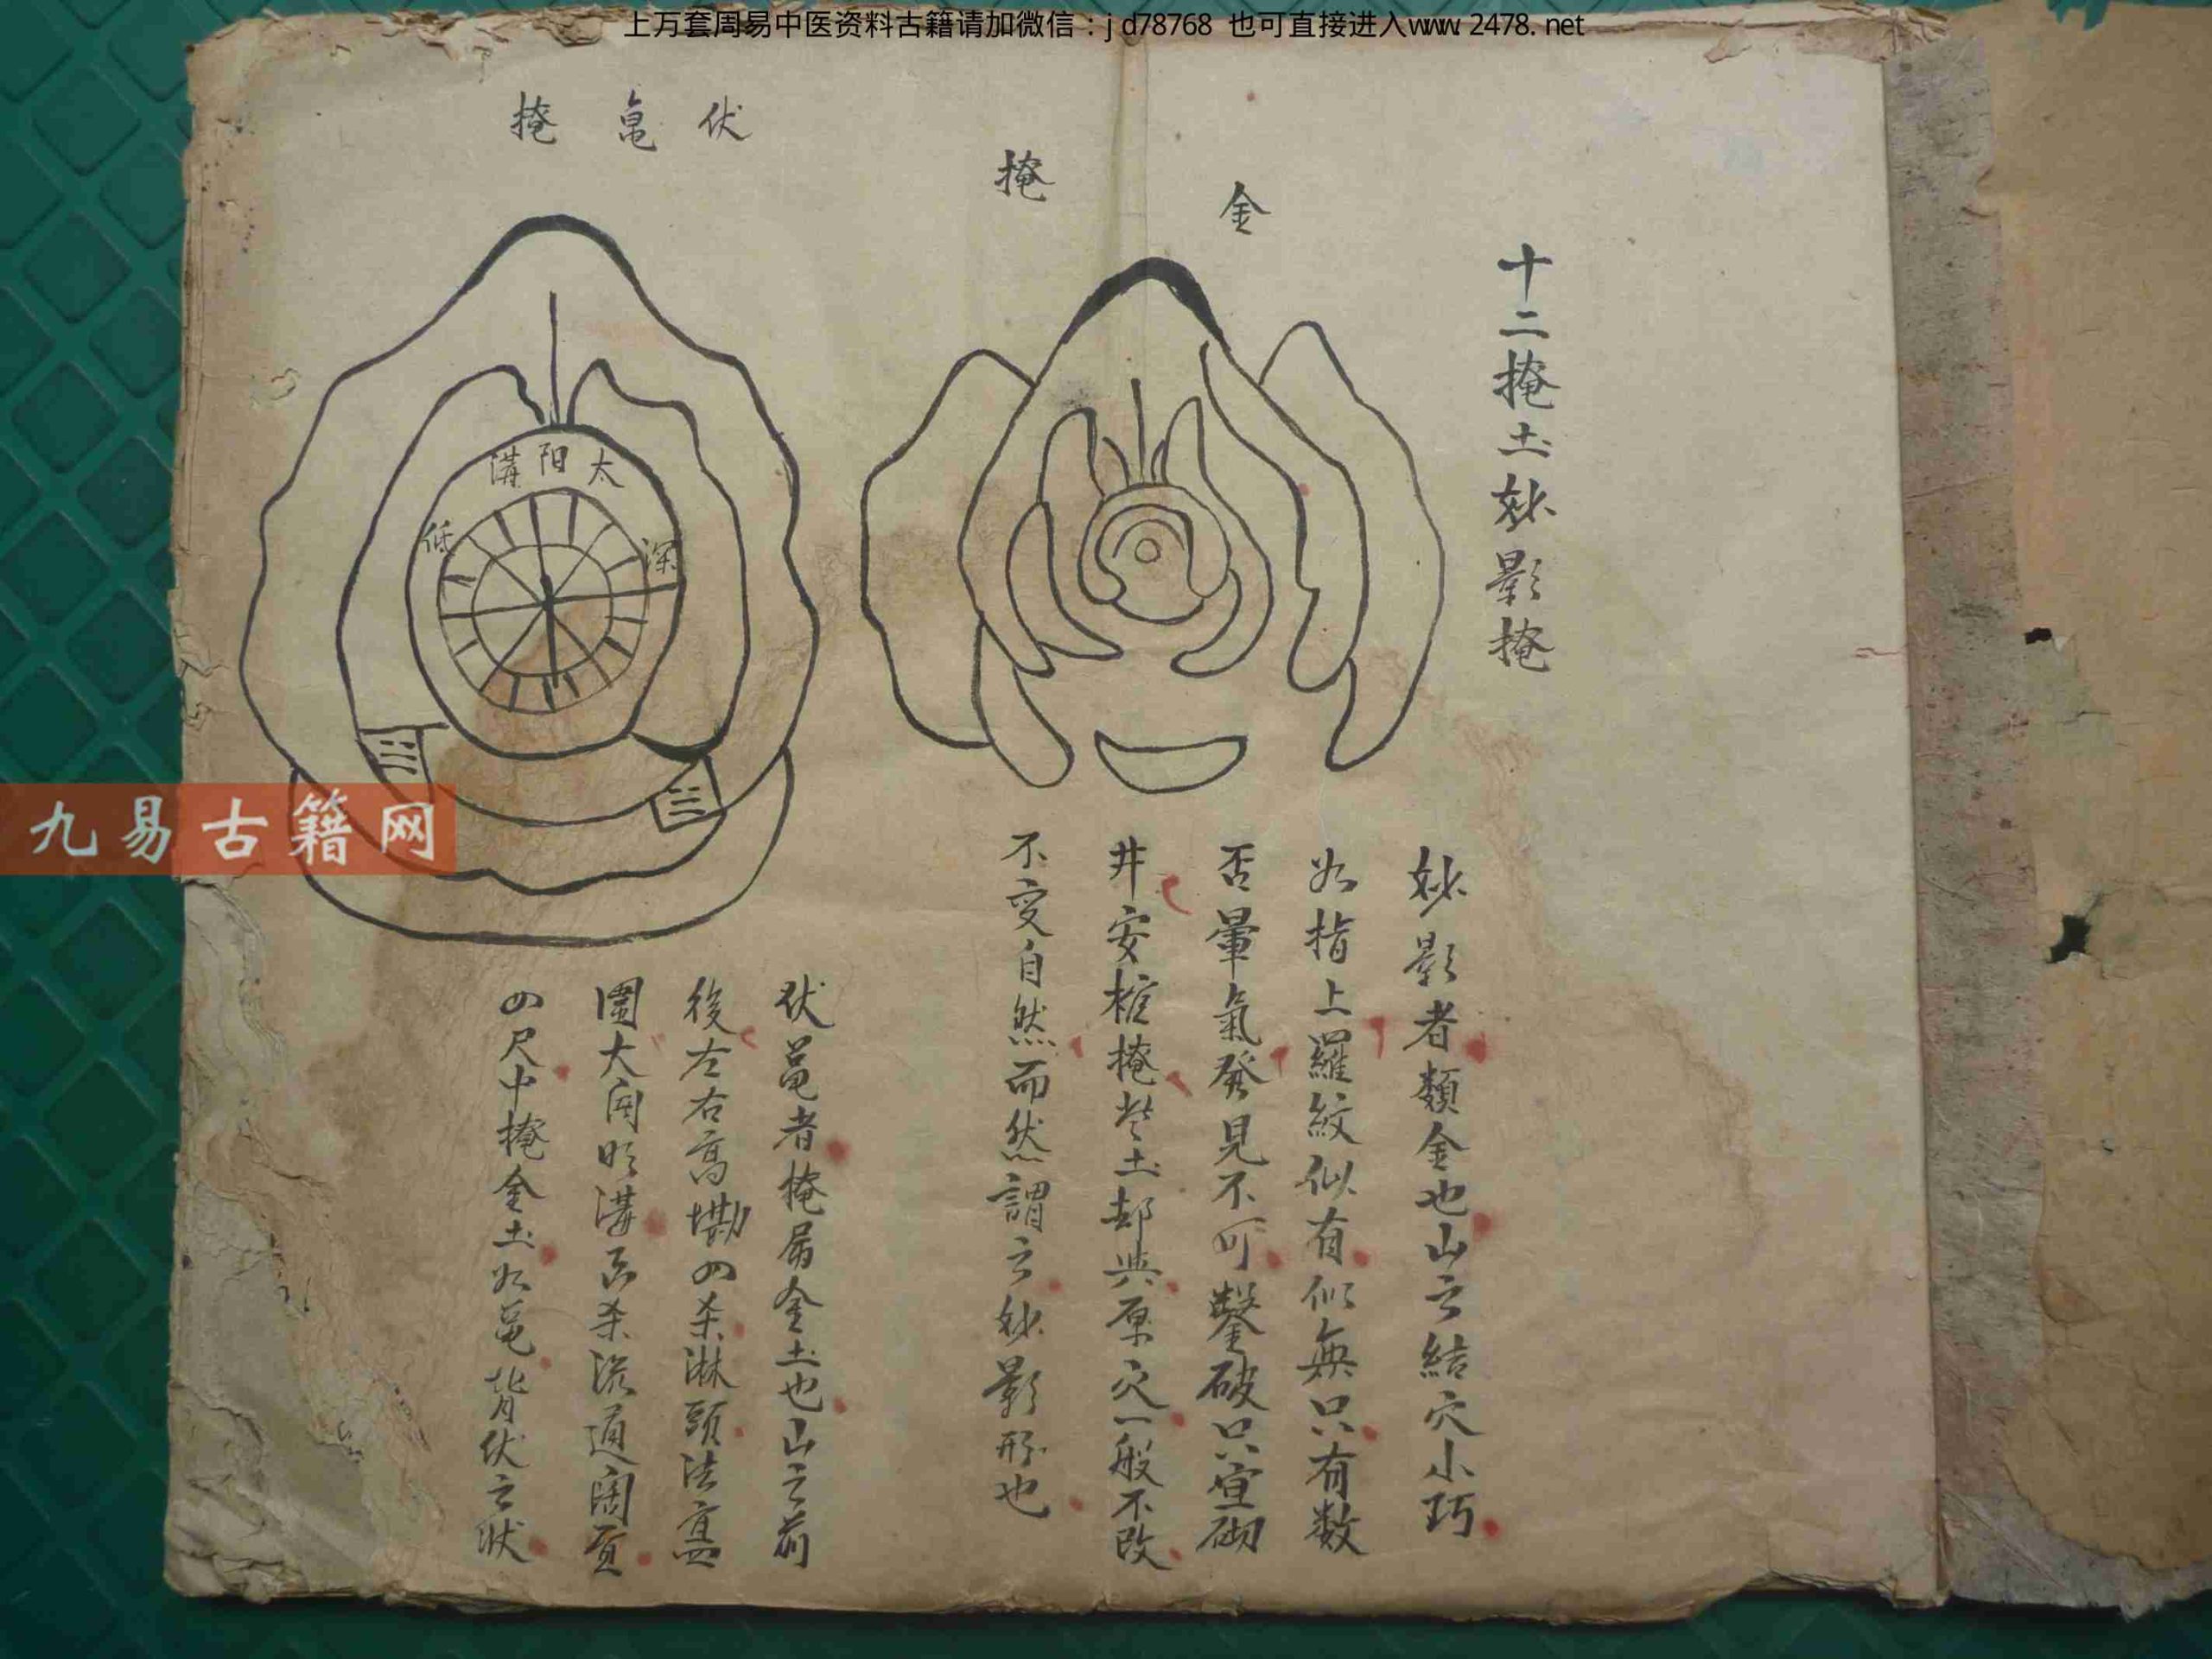 上万套周易中医资料古籍请加微信：jd78768 也可直接进入www.2478.net
十二掩土妙影掩
金
掩
妙影者類金也山之結穴小巧
如指上羅紋似有似無只有数
否暈氣發見不可鑿破只宜砌
井安棺掩土却與原穴一般不改
不变自然而然謂之妙影形也
伏亀掩
太阳溝
深
低
伏亀者掩屬金土也山之前
後左右高墈四杀淋頭法宜
圍大闭明溝杀流道阔
四尺中掩金土如亀背伏之状
九易古籍网